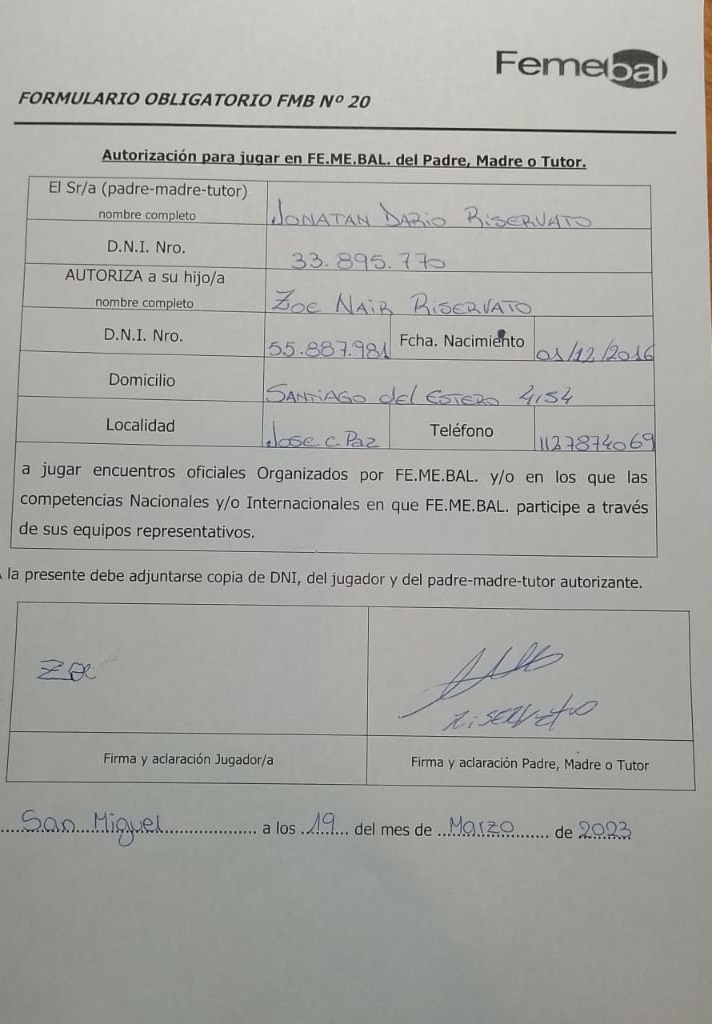 Femebal
FORMULARIO OBLIGATORIO FMB Nº 20
Autorización para jugar en FE.ME.BAL. del Padre, Madre o Tutor.
El Sr/a (padre-madre-tutor)
nombre completo
JONATAN DARIO RISERVATO
D.N.I. Nro.
33.895.770
AUTORIZA a su hijo/a
nombre completo
ZOE NAIR RISERVATO
D.N.I. Nro.
55.887.981
Fcha. Nacimiento
01/12/2016
Domicilio
SANTIAGO del ESTERO 4154
Localidad
Jose C. Paz
Teléfono
1127874069
a jugar encuentros oficiales Organizados por FE.ME.BAL. y/o en los que las
competencias Nacionales y/o Internacionales en que FE.ME.BAL. participe a través
de sus equipos representativos.
la presente debe adjuntarse copia de DNI, del jugador y del padre-madre-tutor autorizante.
Zoe
RISERVATO
Firma y aclaración Jugador/a
Firma y aclaración Padre, Madre o Tutor
San Miguel a los 19 del mes de Marzo de 2023